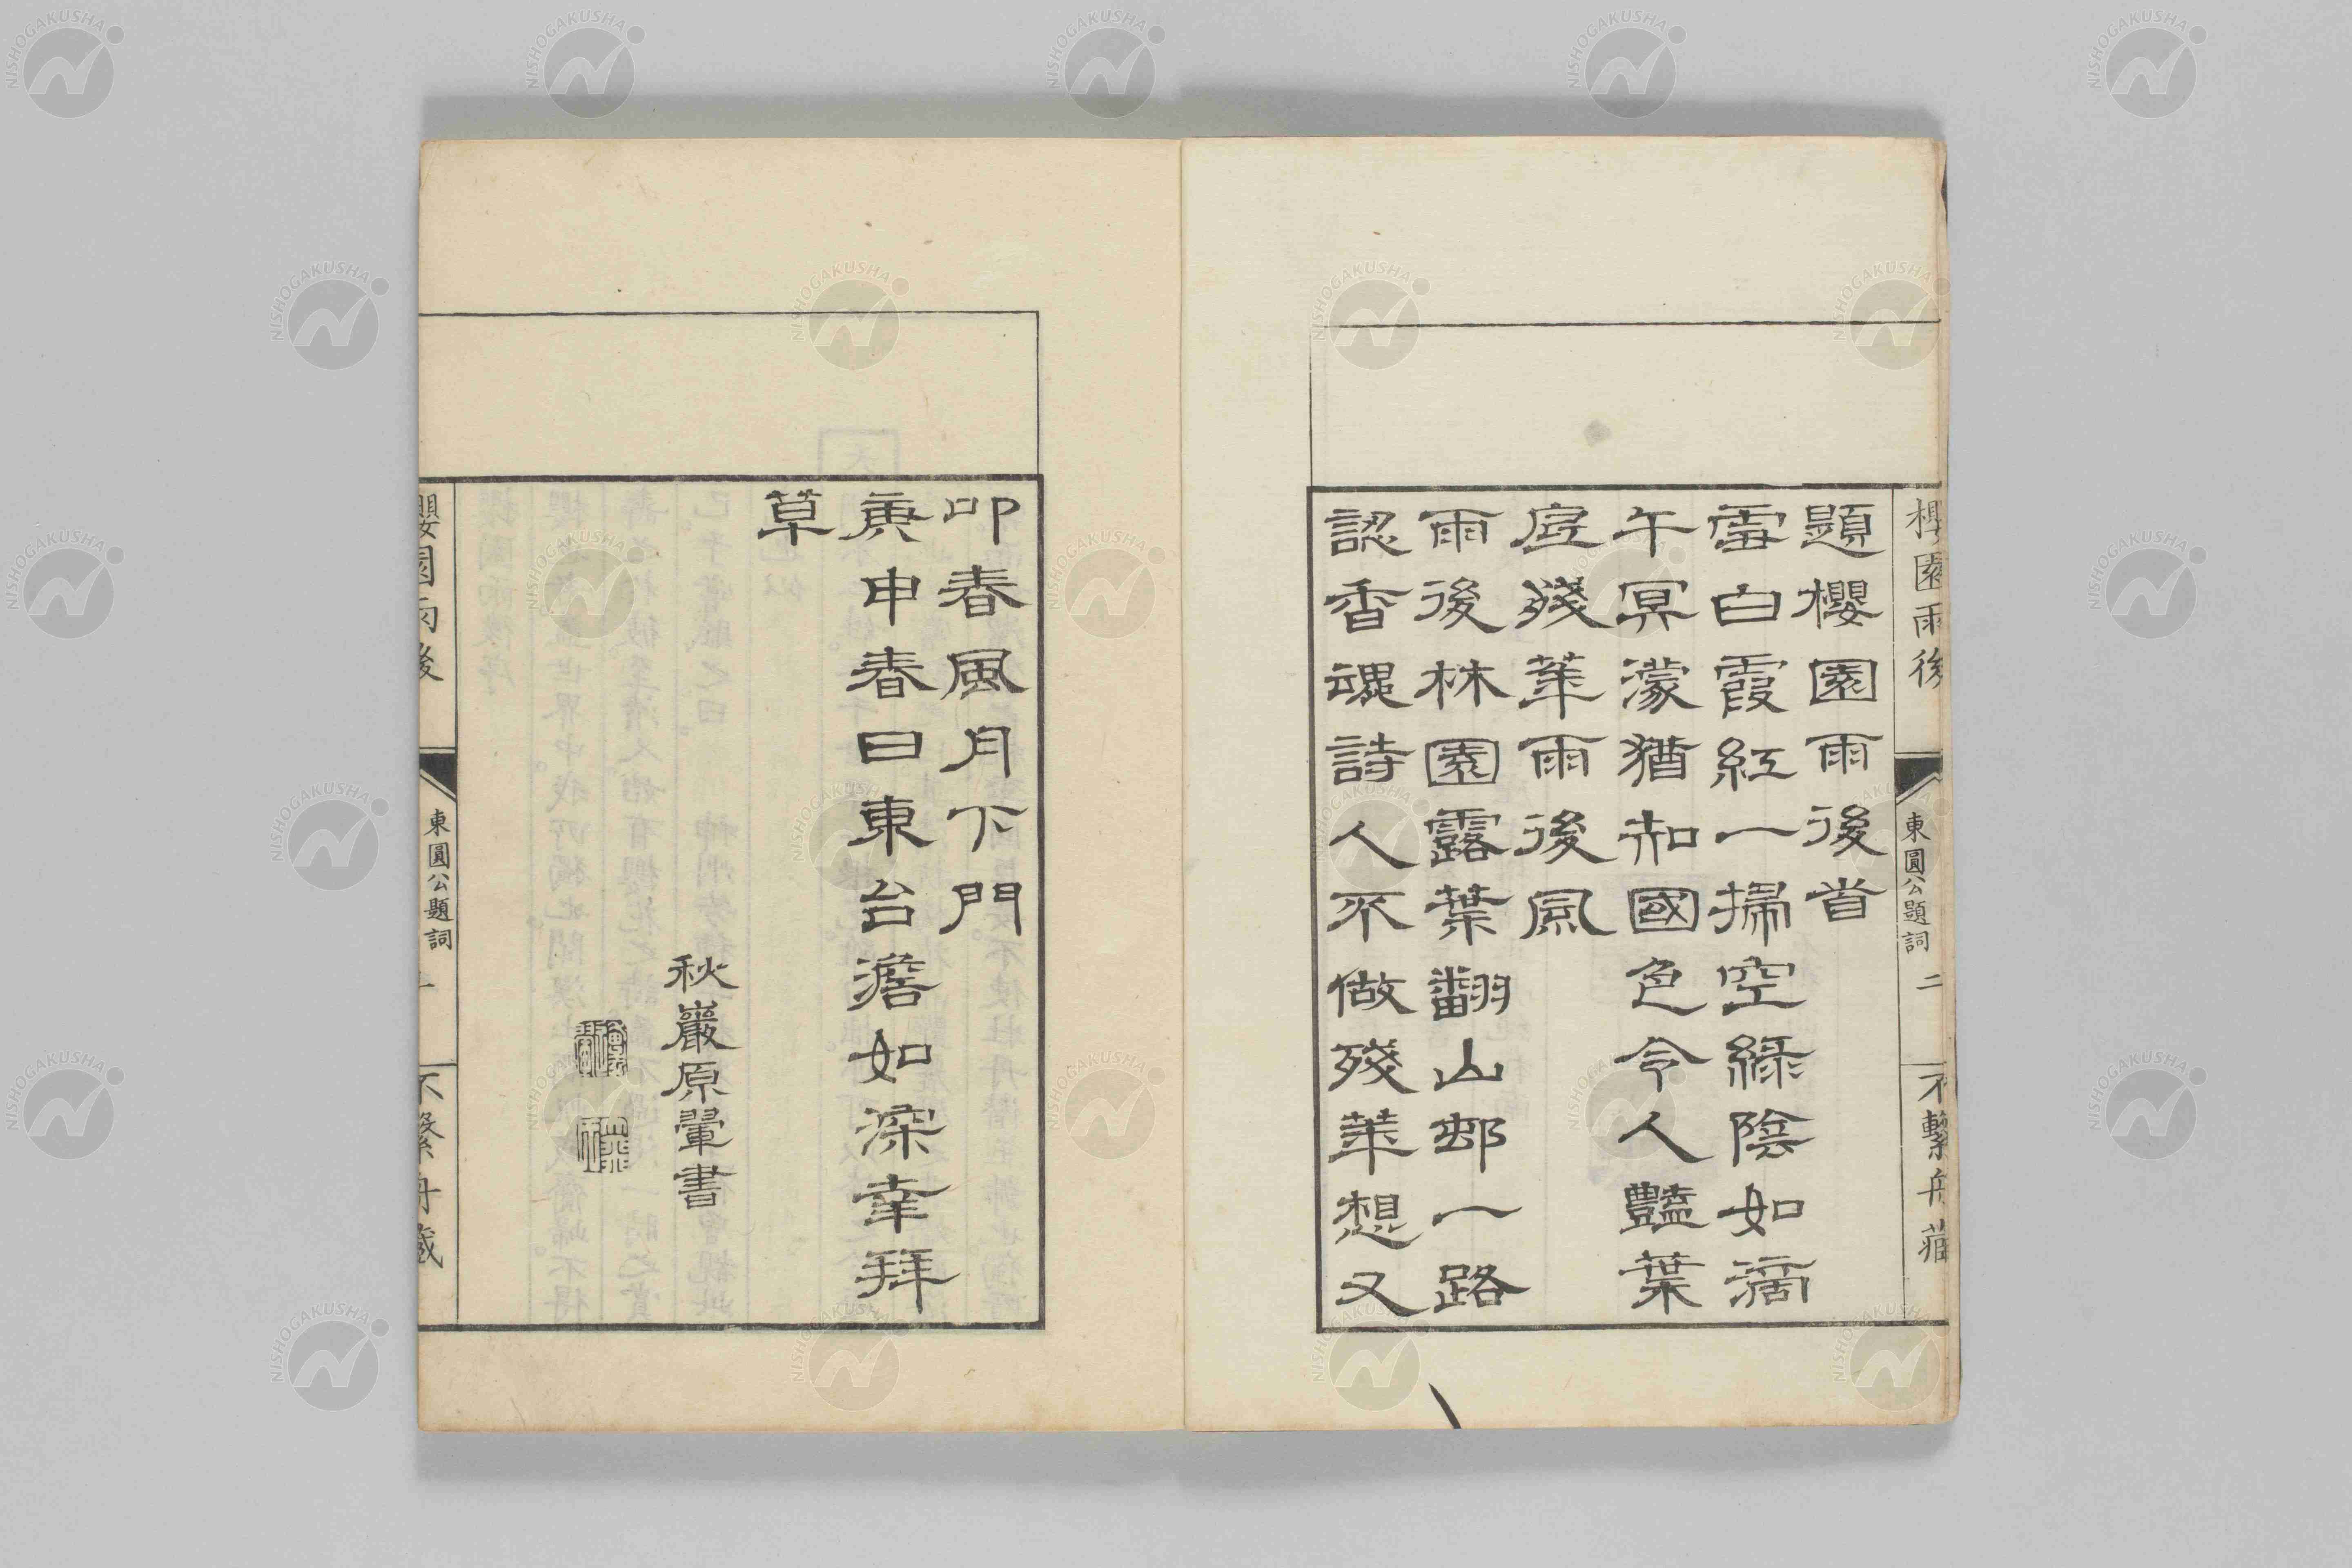 櫻園雨後
東圓公題詞
二
不繫舟藏
題櫻園雨後首
雪白霞紅一掃空綠陰如滴
午冥濛猶知國色令人豔葉
底殘華雨後風
雨後林園露葉翻山邨一路
認香魂詩人不做殘華想又
叩春風月下門
庚申春日東台澹如深幸拜
草
秋巖原翬書
櫻園雨後
東圓公題詞
不繫舟藏
NISHOGAKUSHA